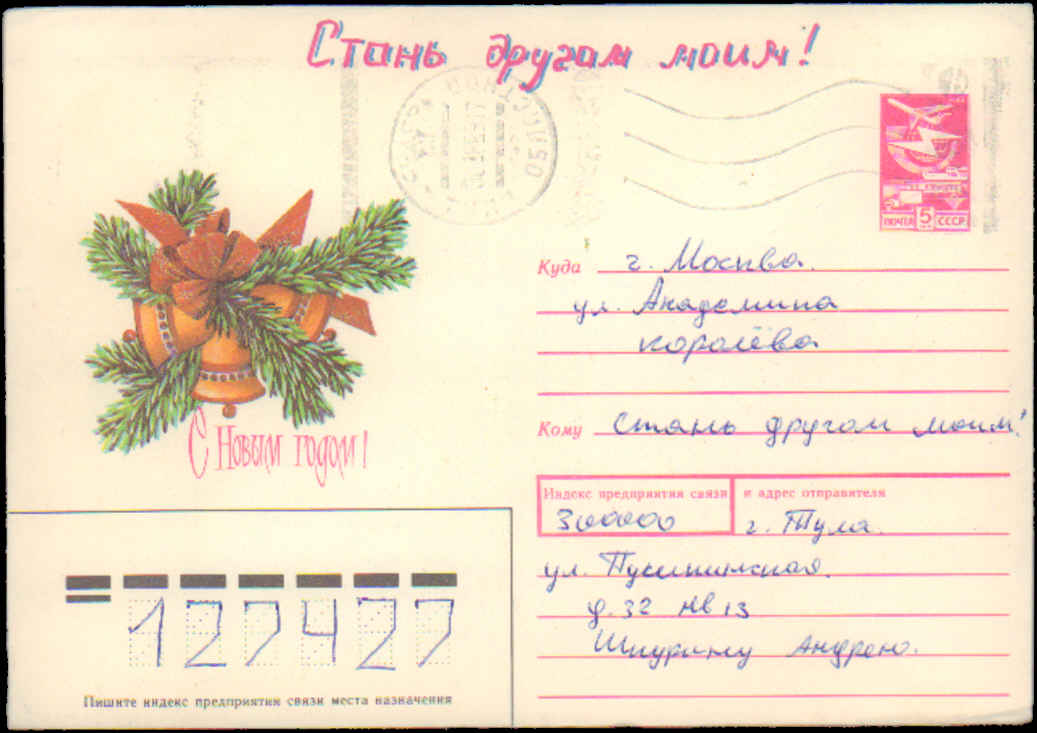 Стань другом моим!
ПОЧТА 5 СССР
Куда г. Москва.
ул. Академика
королёва
Кому Стань другом моим!
С Новым годом!
Индекс предприятия связи и адрес отправителя
300000 г. Тула.
ул. Пушкинская.
д. 32 кв 13
Андрею.
127427
Пишите индекс предприятия связи места назначения